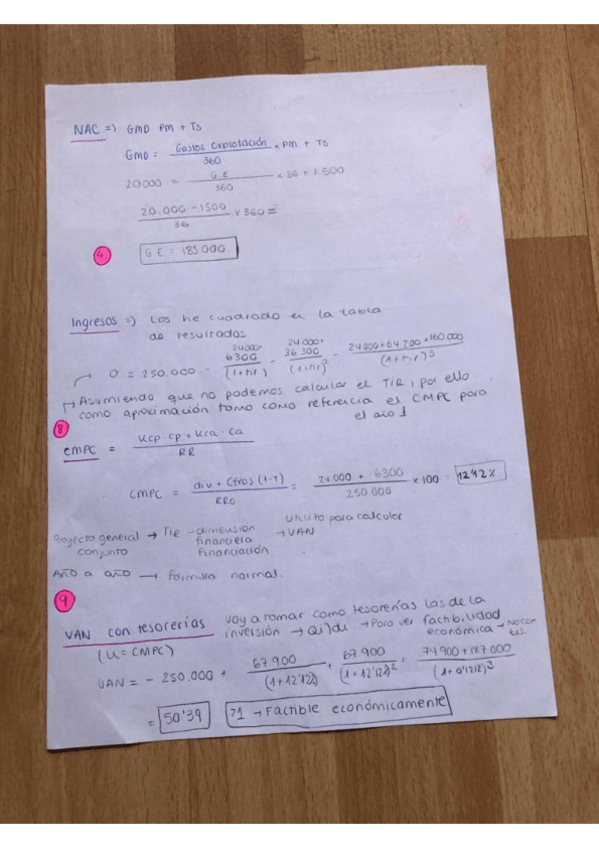 NAC => GMD PM + TS
GMD = Gastos Explotación / 360 × PM + TS
20000 = G.E / 360 × 36 + 1.500
20.000 - 1500 / 36 × 360 =
4. G.E = 185.000
Ingresos => Los he cuadrado en la tabla
de resultados
0 = 250.000 - 24000+ 6300 / (1+r) - 24000+ 36 300 / (1+r)² - 24000+64 200+160 000 / (1+r)³
Asumiendo que no podemos calcular el TIR, por ello
como aproximación tomo como referencia el CMPC para
el año 1
8
CMPC = Kcp · cp + Kca · Ca / RR
CMPC = div + Ctros (1-T) / RRO = 24.000 + 6300 / 250 000 × 100 = 12'12%
Proyecto general → Tie - dimensión para calcular
conjunto financiera → VAN
Financiación
Año a año → Formula normal.
9
VAN con tesorerías voy a tomar como tesorerías las de la
inversión → → Para ver factibilidad
económica →
(K = CMPC)
VAN = - 250.000 + 67 900 / (1+12'12%) + 67 900 / (1+12'12%)² + 74 900 + 187 000 / (1+0'1212)³
= 50'39 >1 → Factible económicamente